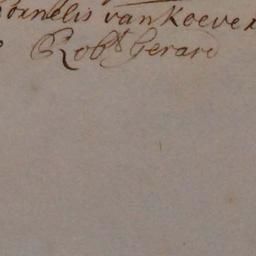 Cornelis van Koeve
Rob.t Gerard